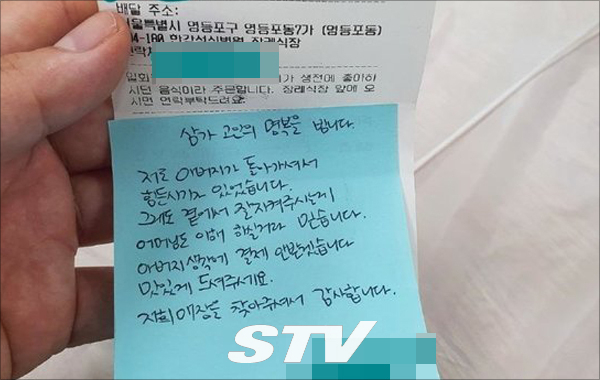 배달 주소:
서울특별시 영등포구 영등포동7가 (영등포동)
94-180 한강성심병원 장례식장
연락처
가 생전에 좋아하
시던 음식이라 주문합니다. 장례식장 앞에 오
시면 연락부탁드려요
삼가 고인의 명복을 빕니다.
저도 아버지가 돌아가셔서
힘든시기가 있었습니다.
그래도 곁에서 잘지켜주시는게
어머님도 이해 하실거라 믿습니다.
아버지생각에 결제 안받겠습니다
맛있게 드셔주세요.
저희매장을 찾아주셔서 감사합니다.
STV